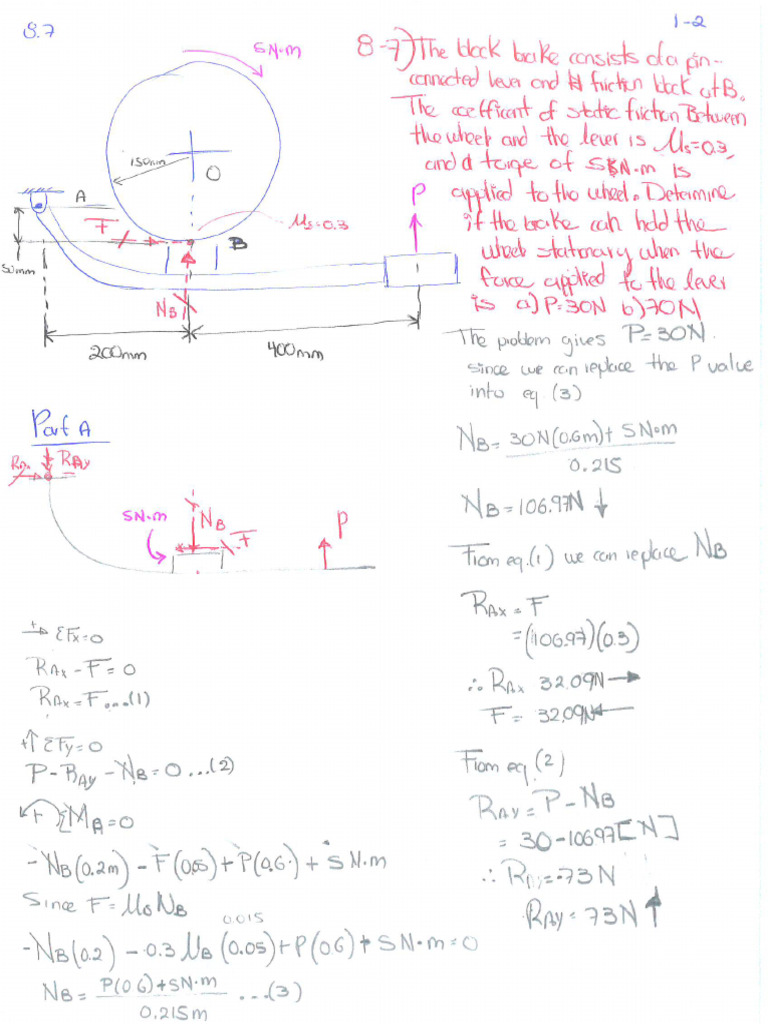 8.7
1-2
5N·m
150mm
O
A
F
μs=0.3
B
P
50mm
NB
200mm
400mm
8-7) The block brake consists of a pin-
connected lever and friction block at B.
The coefficent of static friction Between
the wheel and the lever is μs=0.3,
and a torqe of 5N·m is
applied to the wheel. Determine
if the brake can hold the
wheel stationary when the
force applied to the lever
is a) P=30N b) 70N
The problem gives P=30N.
since we can replace the P value
into eq (3)
NB = 30N(0.6m)+5N·m
0.215
NB = 106.97N ↓
From eq.(1) we can replace NB
RAx = F
= (106.97)(0.3)
∴ RAx 32.09N →
F = 32.09N ←
From eq.(2)
RAy = P-NB
= 30-106.97[N]
∴ RAy = -73N
RAy = 73N ↑
Part A
RAx RAy
5N·m
NB
F
P
+→ ΣFx=0
RAx - F = 0
RAx = F ...(1)
+↑ ΣFy=0
P-RAy-NB=0 ...(2)
+ ΣMA=0
-NB(0.2m)-F(0.05)+P(0.6)+5N·m
Since F=μsNB
0.015
-NB(0.2)-0.3NB(0.05)+P(0.6)+5N·m=0
NB = P(0.6)+5N·m ...(3)
0.215m